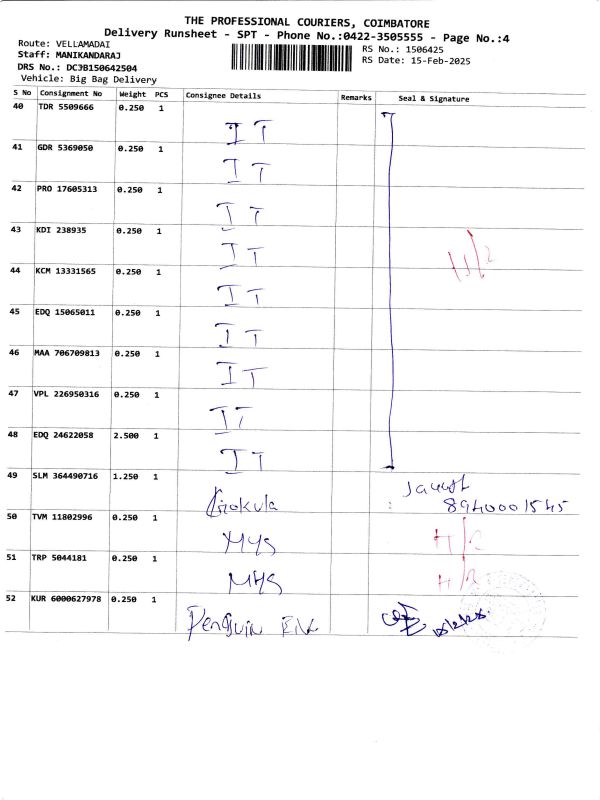 THE PROFESSIONAL COURIERS, COIMBATORE
Delivery Runsheet - SPT - Phone No.:0422-3505555 - Page No.:4
Route: VELLAMADAI
RS No.: 1506425
Staff: MANIKANDARAJ
RS Date: 15-Feb-2025
DRS No.: DCJB150642504
Vehicle: Big Bag Delivery
S No Consignment No Weight PCS Consignee Details Remarks Seal & Signature
40 TDR 5509666 0.250 1 IT
41 GDR 5369050 0.250 1 IT
42 PRO 17605313 0.250 1 IT
43 KDI 238935 0.250 1 IT
44 KCM 13331565 0.250 1 IT
45 EDQ 15065011 0.250 1 IT
46 MAA 706709813 0.250 1 IT
47 VPL 226950316 0.250 1 IT
48 EDQ 24622058 2.500 1 IT
49 SLM 364490716 1.250 1 Gokula
8940001545
50 TVM 11802996 0.250 1 MYS
51 TRP 5044181 0.250 1 MYS
52 KUR 6000627978 0.250 1 Penguin